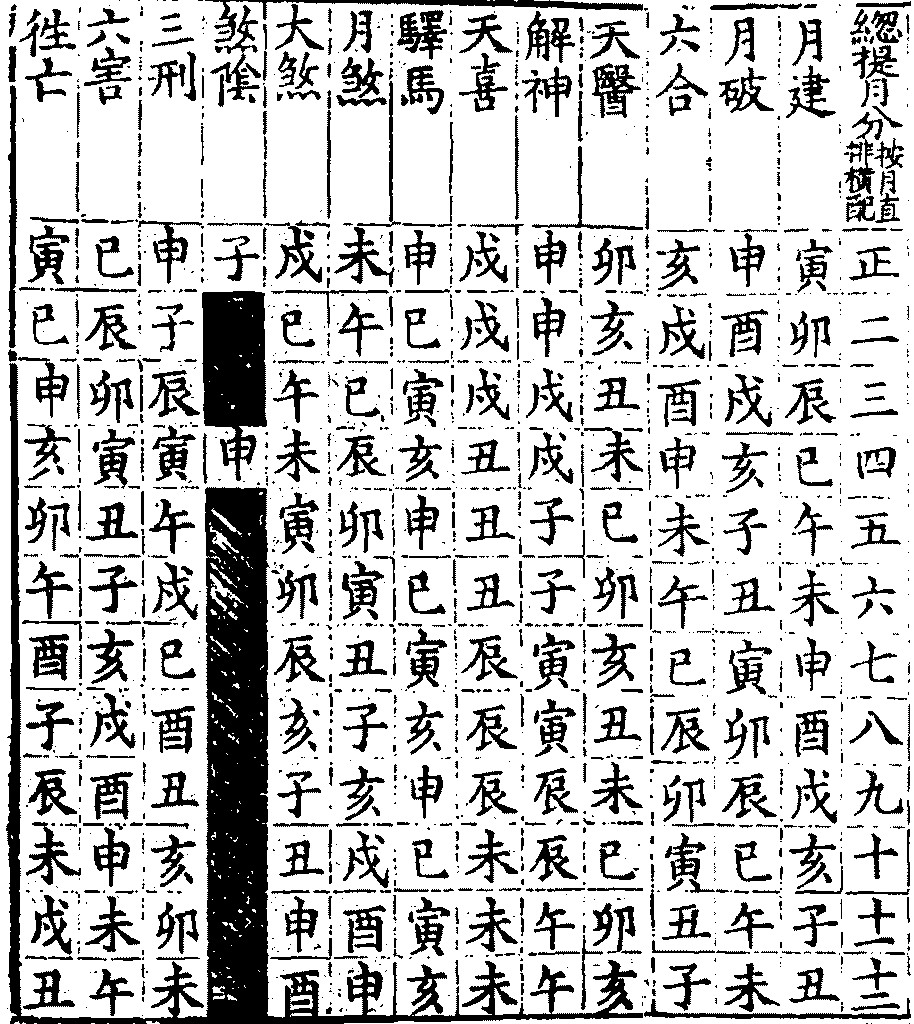 緫提月分 按月直排橫配 正 二 三 四 五 六 七 八 九 十 十一 十二
月建 寅 卯 辰 巳 午 未 申 酉 戌 亥 子 丑
月破 申 酉 戌 亥 子 丑 寅 卯 辰 巳 午 未
六合 亥 戌 酉 申 未 午 巳 辰 卯 寅 丑 子
天醫 卯 亥 丑 未 巳 卯 亥 丑 未 巳 卯 亥
解神 申 申 戌 戌 子 子 寅 寅 辰 辰 午 午
天喜 戌 戌 戌 丑 丑 丑 辰 辰 辰 未 未 未
驛馬 申 巳 寅 亥 申 巳 寅 亥 申 巳 寅 亥
月煞 未 午 巳 辰 卯 寅 丑 子 亥 戌 酉 申
大煞 戌 巳 午 未 寅 卯 辰 亥 子 丑 申 酉
煞陰 子 申
三刑 申 子 辰 寅 午 戌 巳 酉 丑 亥 卯 未
六害 巳 辰 卯 寅 丑 子 亥 戌 酉 申 未 午
徃亡 寅 巳 申 亥 卯 午 酉 子 辰 未 戌 丑